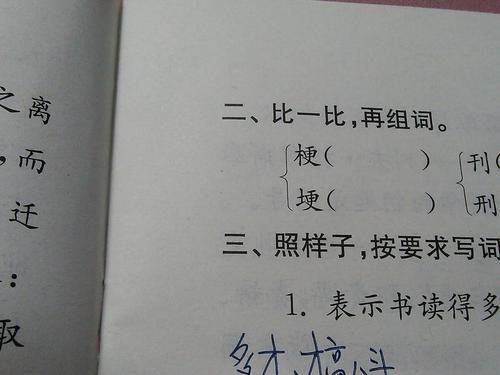 之离
，而
迁
：
取
二、比一比，再组词。
梗(  ) 刊(
埂(  ) 刑(
三、照样子，按要求写词
1. 表示书读得多
多才、